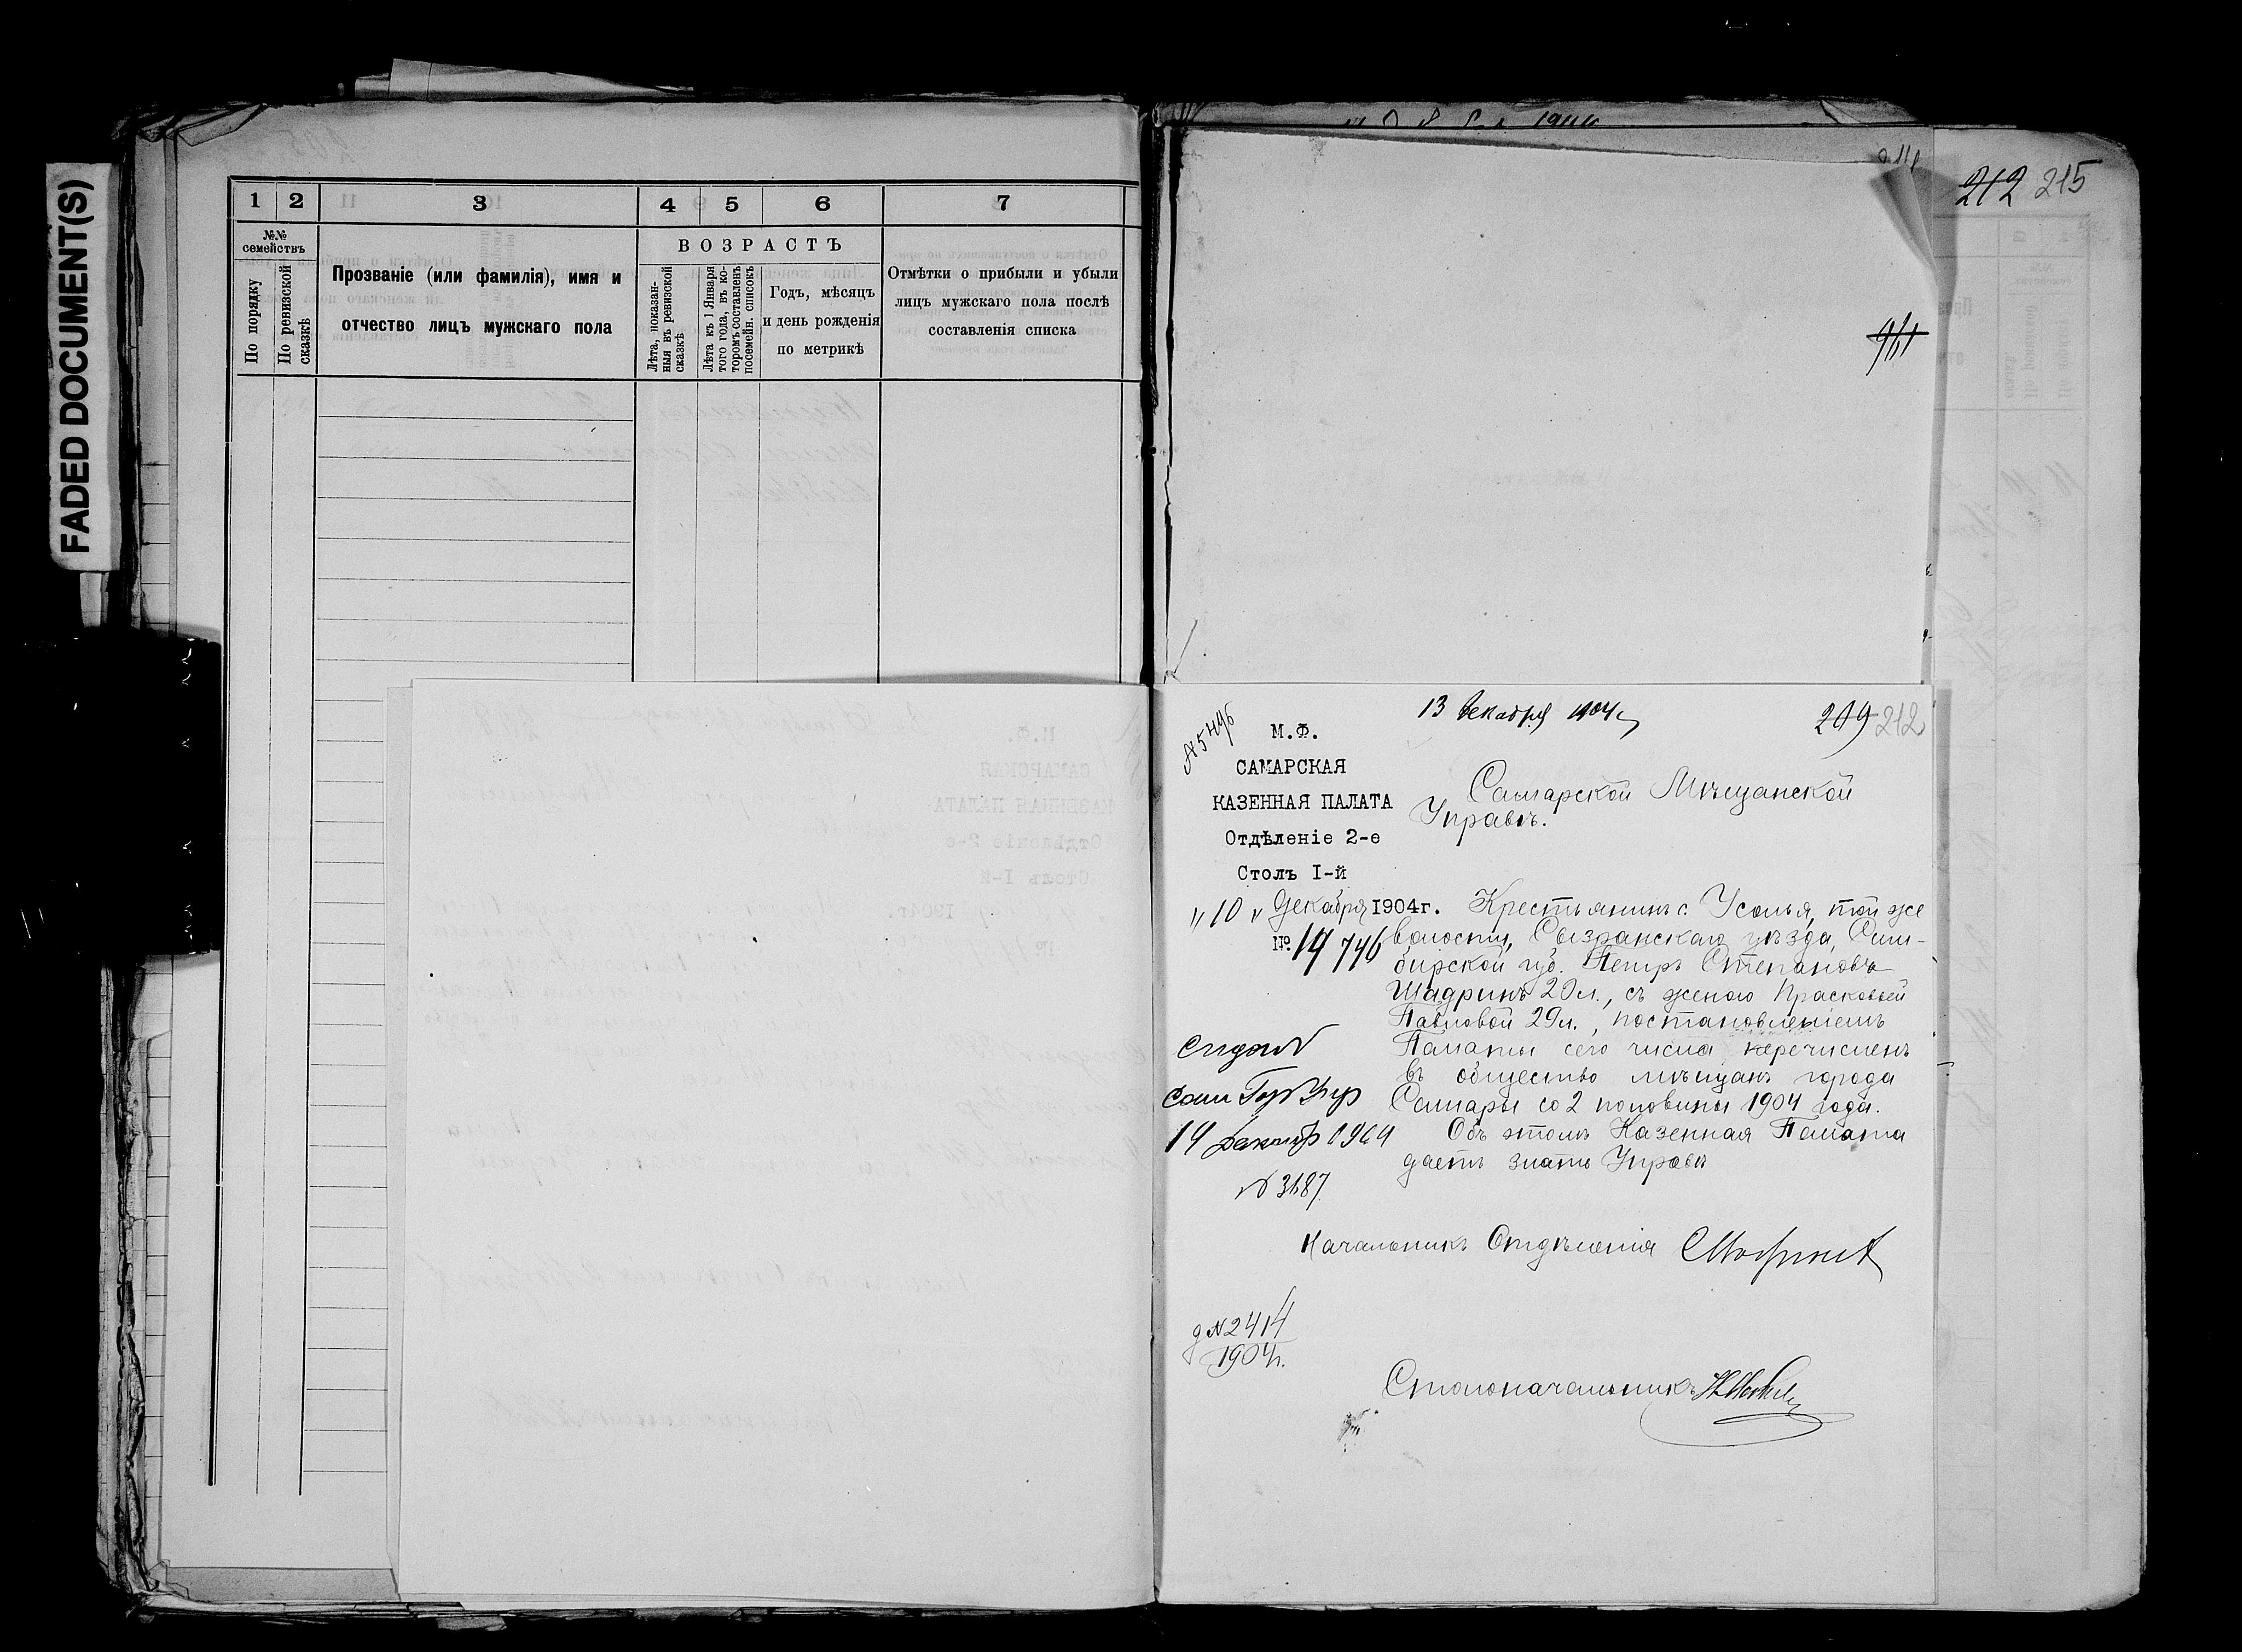 FADED DOCUMENT(S)
1 2 3 4 5 6 7
№№ семействъ
По порядку
По ревизской сказкѣ
Прозваніе (или фамилія), имя и
отчество лицъ мужскаго пола
ВОЗРАСТЪ
Лѣта, показан-
ныя въ ревизской
сказкѣ
Лѣта къ 1 Января
того года, въ ко-
торомъ составленъ
посемейн. списокъ
Годъ, мѣсяцъ
и день рожденія
по метрикѣ
Отмѣтки о прибыли и убыли
лицъ мужскаго пола послѣ
составленія списка
212 215
13 декабря 1904 г
209 212
№ 5496
М.Ф.
САМАРСКАЯ
КАЗЕННАЯ ПАЛАТА
Отдѣленіе 2-е
Столъ I-й
"10" Декабря 1904г.
№ 14746
Самарской Мѣщанской
Управѣ.
Крестьянинъ с. Усолья, той же
волости, Сызранскаго уѣзда, Сим-
бирской губ. Петръ Степановъ
Шадринъ 29 л., съ женою Прасковьей
Павловой 29 л., постановленіемъ
Палаты сего числа перечисленъ
въ общество мѣщанъ города
Самары со 2 половины 1904 года.
Объ этомъ Казенная Палата
даетъ знать Управѣ
14 декабр 1904
№ 3187
Начальникъ Отдѣленія
д № 2414
1904 г.
Столоначальникъ